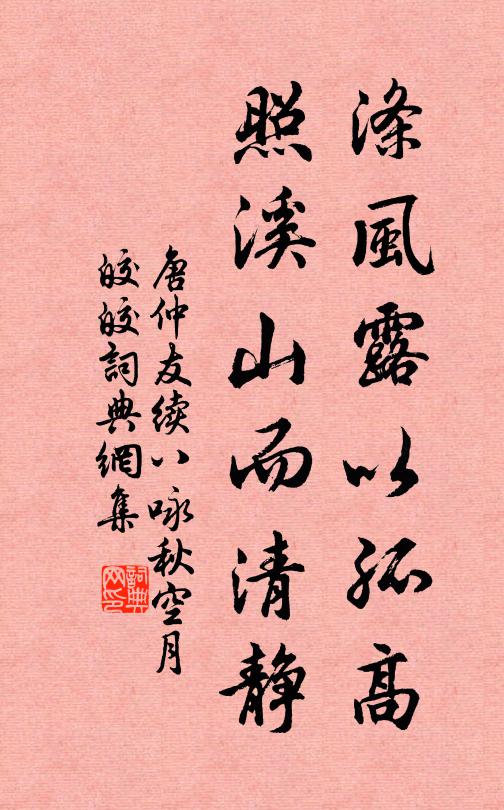 滌風露以孤高
照溪山而清靜
唐仲友續八咏秋空月
皎皎詞典網集
詞典网印